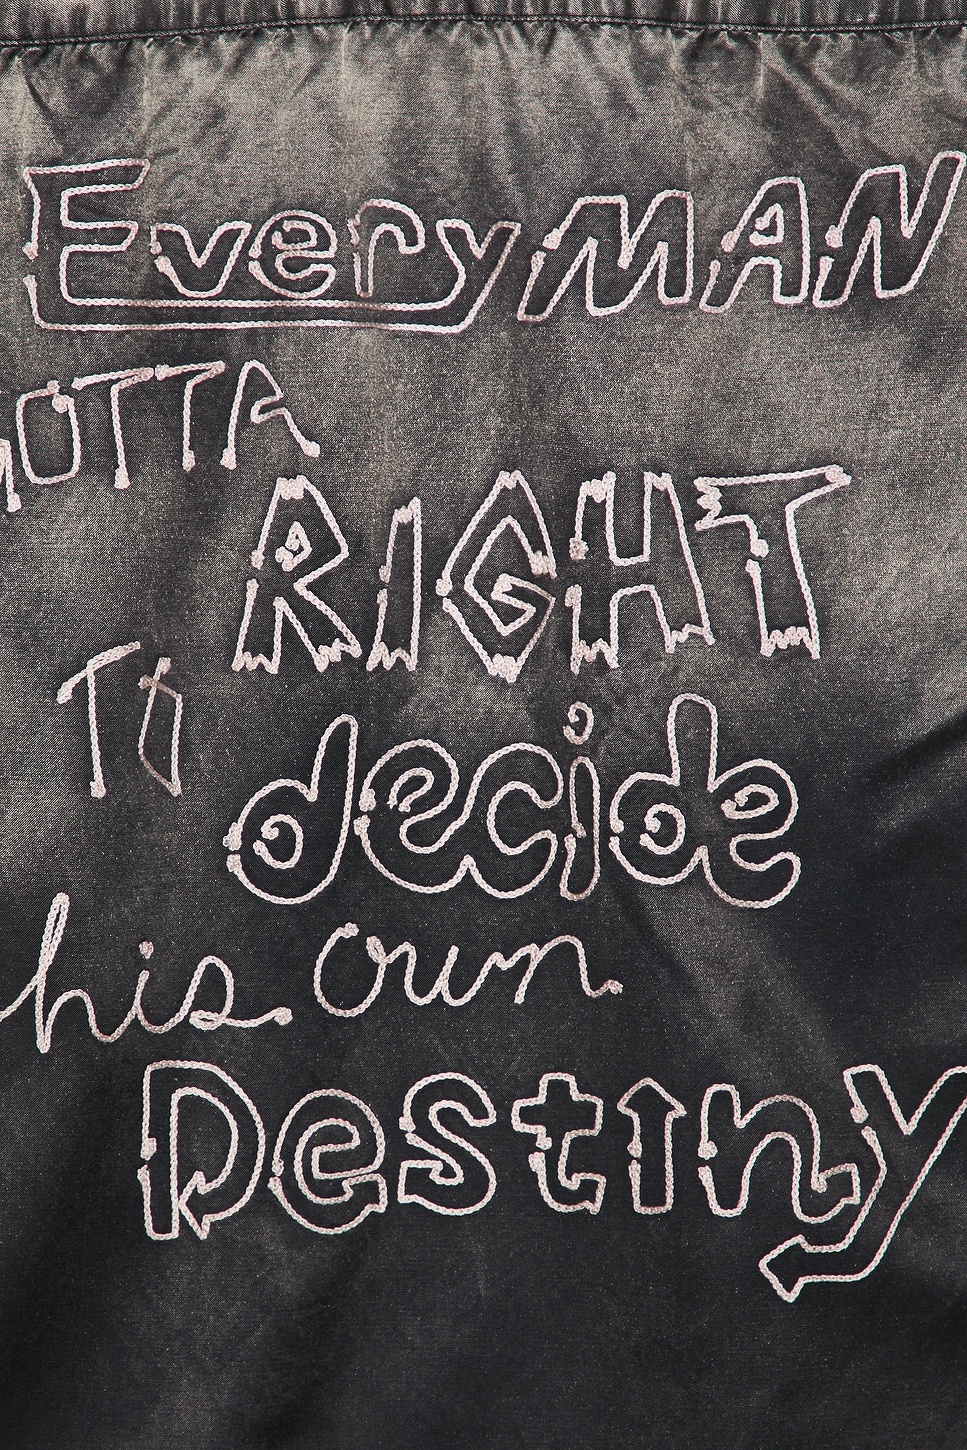 Every MAN
GOTTA
RIGHT
To
decide
his own
Destiny